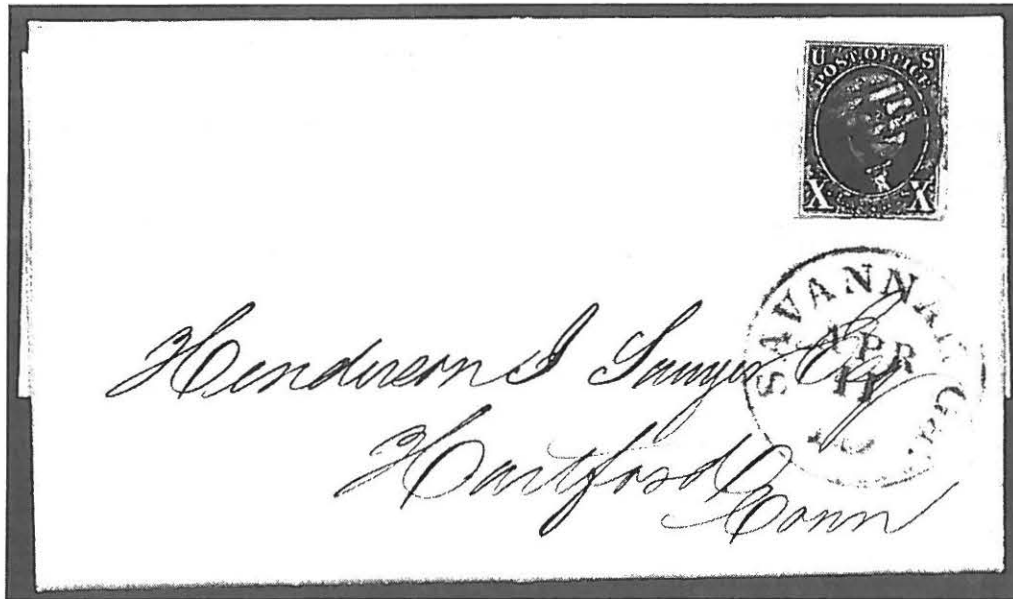 U S
POST OFFICE
X X
SAVANNAH Ga.
APR
11
10
Henderson J Sawyer Esq
Hartford
Conn